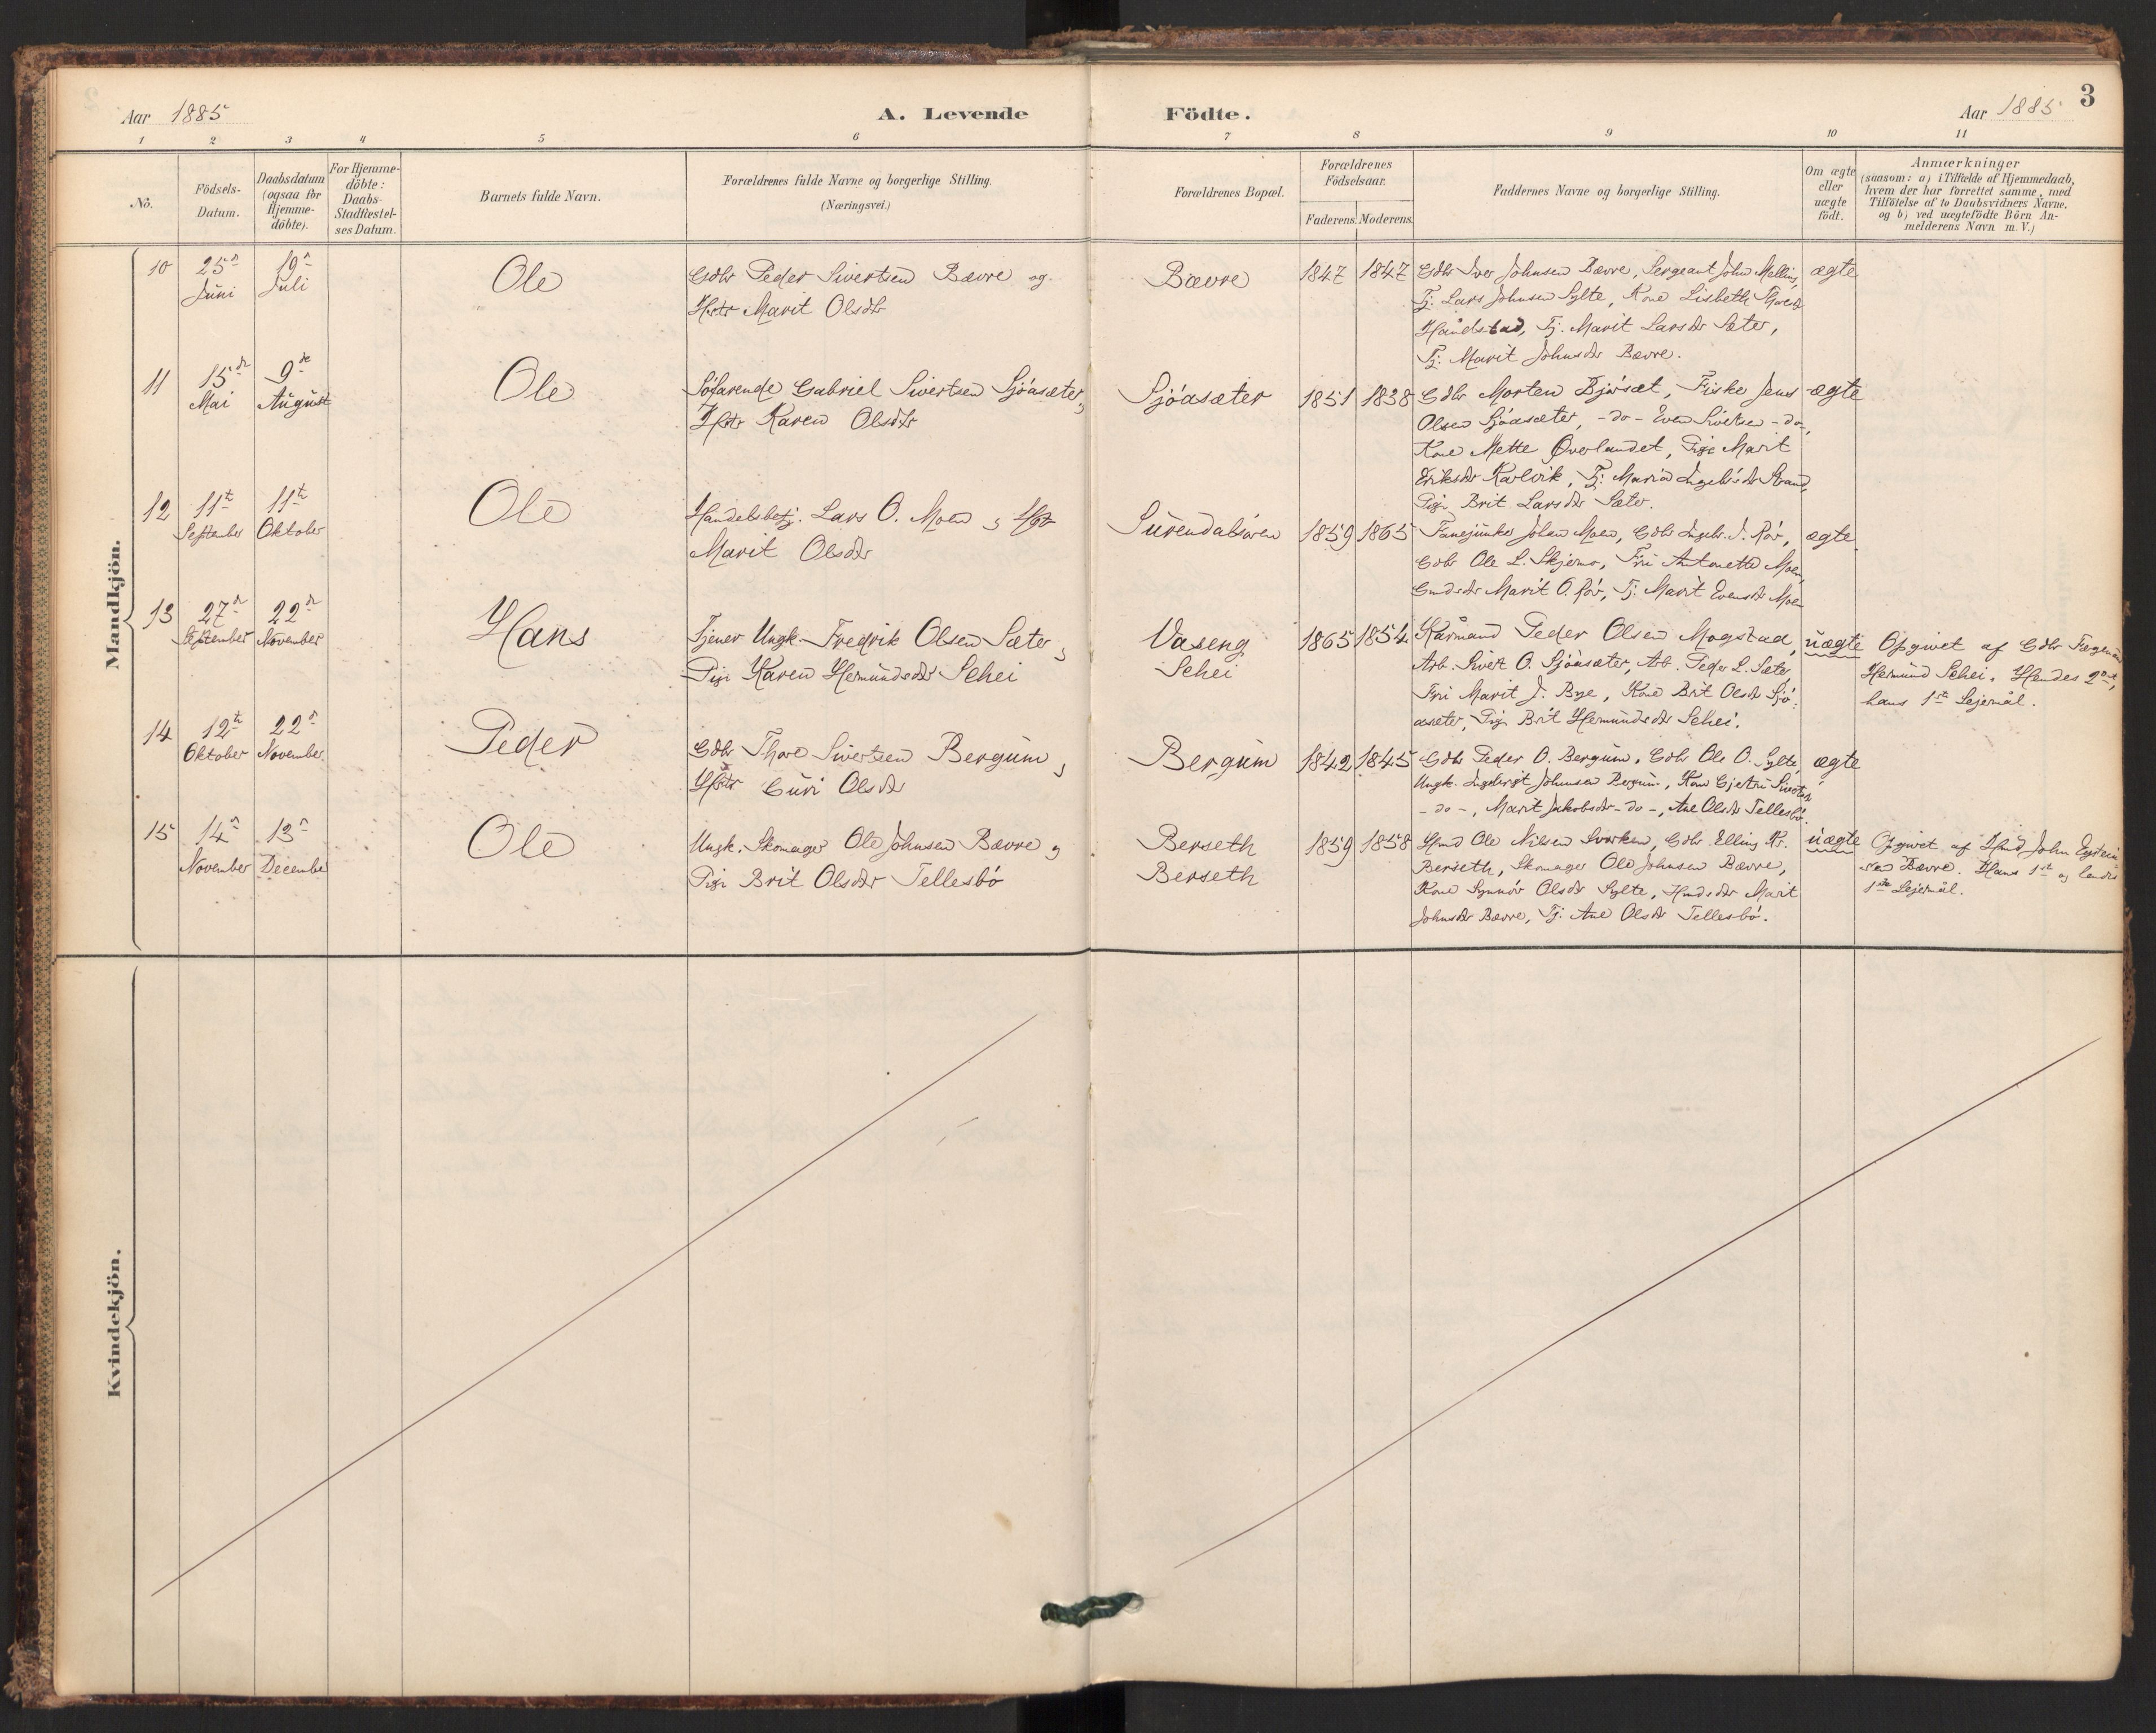 Aar 1885
A. Levende Födte.
Aar 1885
3
1 2 3 4 5 6 7 8 9 10 11
No.
Födsels-Datum.
Daabsdatum (ogsaa for Hjemme-döbte).
For Hjemme-döbte: Daabs-Stadfæstel-ses Datum.
Barnets fulde Navn.
Forældrenes fulde Navne og borgerlige Stilling.
(Næringsvei.)
Forældrenes Bopæl.
Forældrenes Födselsaar.
Faderens. Moderens.
Faddernes Navne og borgerlige Stilling.
Om ægte eller uægte födt.
Anmærkninger
(saasom: a) i Tilfælde af Hjemmedaab,
hvem der har forrettet samme, med
Tilföielse af to Daabsvidners Navne,
og b) ved uægtefödte Börn An-
melderens Navn m. V.)
Mandkjön.
10 25 Juni 19 Juli
Ole
Gdbr Peder Sivertsen Bævre og
Hstr Marit Olsdtr
Bævre
1847 1847
Gdbr Iver Johnsen Bævre, Sergeant John Melling,
Tj. Lars Johnsen Sylte, Kone Lisbeth
Håndstad, Tj. Marit Larsdtr Sæter,
Tj. Marit Johnsdtr Bævre.
ægte
11 15 Mai 9de August
Ole
Söfarende Gabriel Sivertsen Sjöasæter,
Hstr Karen Olsdtr
Sjöasæter
1851 1838
Gdbr Morten Bjørsæt, Fisker Jens
Olsen Sjöasæter, -do- Even Sivertsen -do-,
Kone Mette Øverlandet, Pige Marit
Eriksdtr Karlvik, Tj. Marit Strand,
Pige Brit Larsdtr Sæter.
ægte
12 11te September 11te Oktober
Ole
Handelsbetj. Lars O. Moen og Hstr
Marit Olsdtr
Surendalsören
1859 1865
Fanejunker Johan Moen, Gdbr Ingebr. J. Rör,
Gdbr Ole L. Skjermo, Fru Antonette Moen,
Gmdsdtr Marit O. Rör, Tj. Marit Evensdtr Moen
ægte
13 27 September 22 November
Hans
Tjener Ungk. Fredrik Olsen Sæter og
Pige Karen Hermundsdtr Schei
Vaseng
Schei
1865 1854
Kårmand Peder Olsen Mogstad,
Arb. Sivert O. Sjöasæter, Arb. Peder L. Sæter,
Fru Marit J. Bye, Kone Brit Olsdtr Sjö-
asæter, Pige Brit Hermundsdtr Schei.
uægte
Opgivet af Gdbr
Hermund Schei. Hendes 2det,
hans 1ste Lejermål.
14 12te Oktober 22 November
Peder
Gdbr Thore Sivertsen Bergum og
Hstr Guri Olsdtr
Bergum
1842 1845
Gdbr Peder O. Bergum, Gdbr Ole O. Sylte,
Ungk. Ingebrigt Johnsen Bergum, Kone Gjertru Sivertsdtr
-do-, Marit Jakobsdtr -do-, Ane Olsdtr Tellesbö.
ægte
15 14 November 13 December
Ole
Ungk. Skomager Ole Johnsen Bævre og
Pige Brit Olsdtr Tellesbö
Berseth
Berseth
1859 1858
Hmd Ole Nilsen Svorken, Gdbr Elling Kr.
Berseth, Skomager Ole Johnsen Bævre,
Kone Synnör Olsdtr Sylte, Hmdsdtr Marit
Johnsdtr Bævre, Tj. Ane Olsdtr Tellesbö.
uægte
Opgivet af Hmd John Eystein-
sen Bævre. Hans 1ste og hendes
1ste Lejermål.
Kvindekjön.